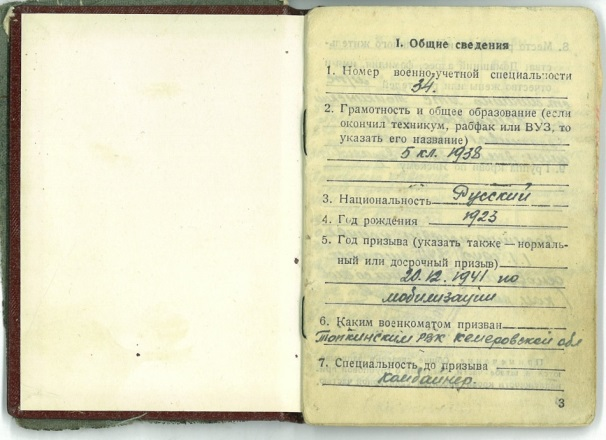 I. Общие сведения
1. Номер военно-учетной специальности
34.
2. Грамотность и общее образование (если
окончил техникум, рабфак или ВУЗ, то
указать его название)
5 кл. 1938
3. Национальность Русский
4. Год рождения 1923
5. Год призыва (указать также — нормаль-
ный или досрочный призыв)
20.12.1941 по
мобилизации
6. Каким военкоматом призван
Топкинским РВК Кемеровской обл
7. Специальность до призыва
комбайнер.
3